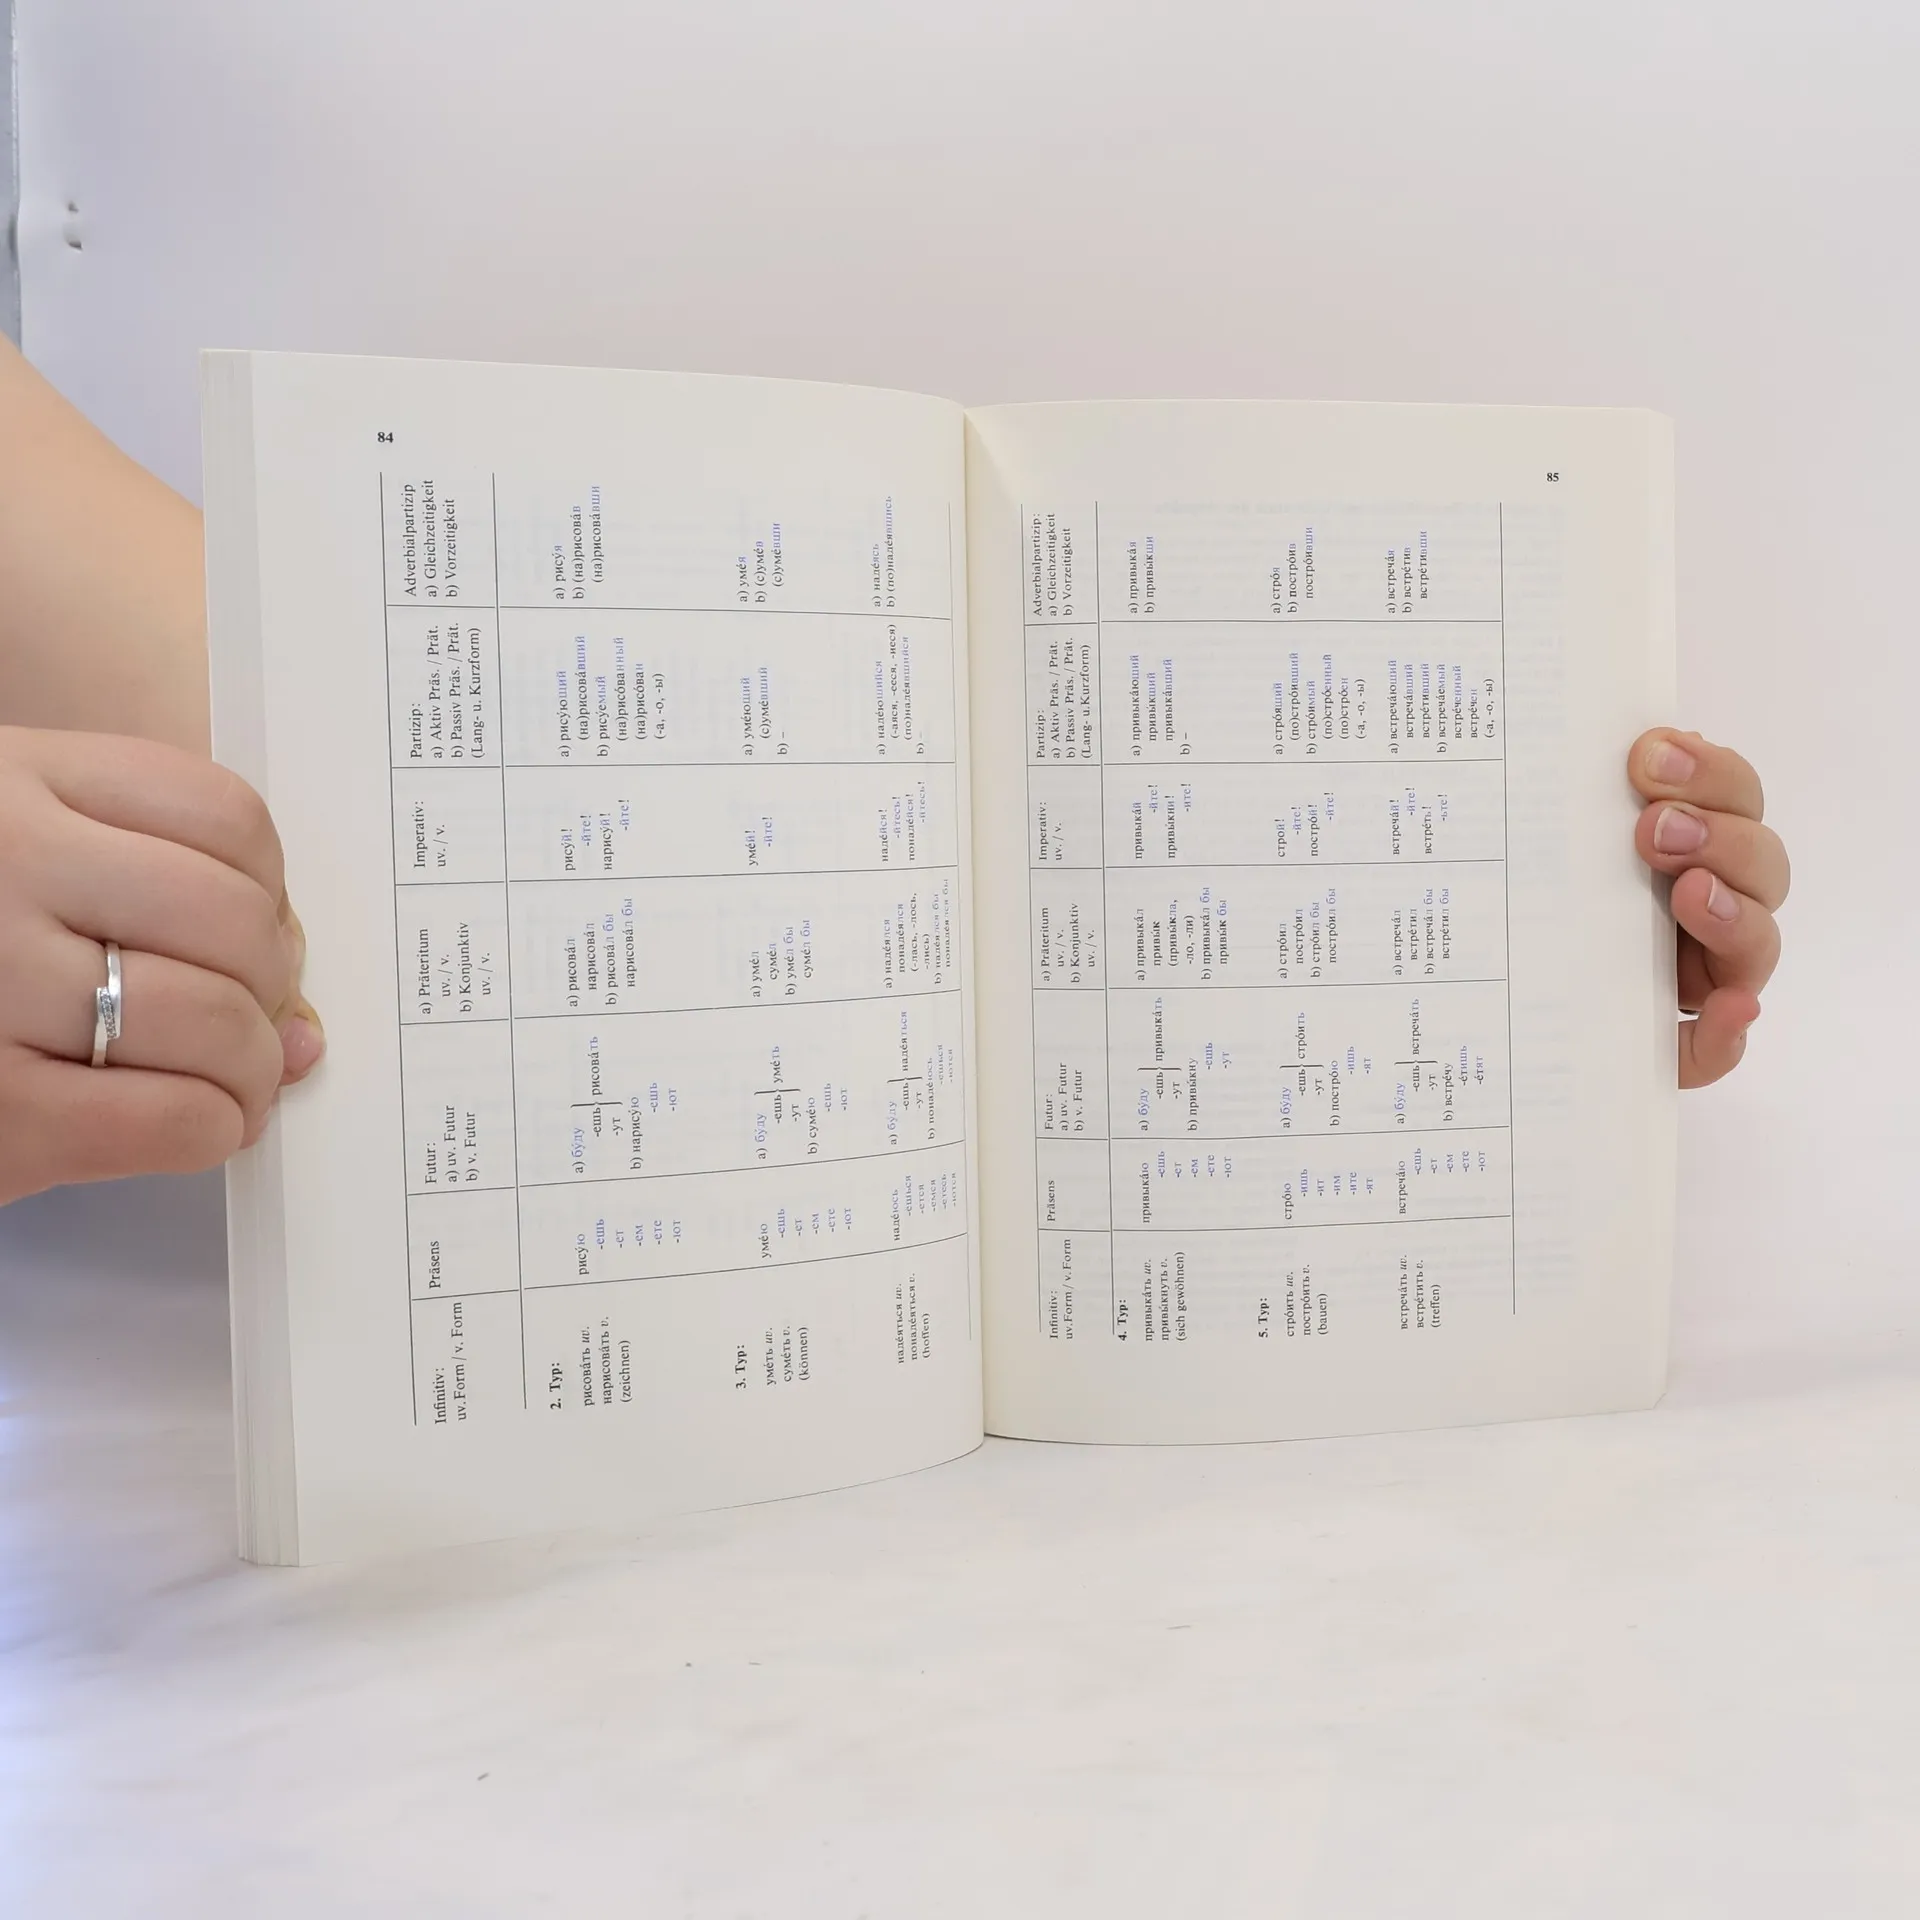 84
Infinitiv:
uv. Form / v. Form
Präsens
Futur:
a) uv. Futur
b) v. Futur
a) Präteritum
uv. / v.
b) Konjunktiv
uv. / v.
Imperativ:
uv. / v.
Partizip:
a) Aktiv Präs. / Prät.
b) Passiv Präs. / Prät.
(Lang- u. Kurzform)
Adverbialpartizip
a) Gleichzeitigkeit
b) Vorzeitigkeit
2. Typ:
рисова́ть uv.
нарисова́ть v.
(zeichnen)
рису́ю
-ешь
-ет
-ем
-ете
-ют
a) бу́ду
-ешь } рисова́ть
-ут
b) нарису́ю
-ешь
-ют
a) рисова́л
нарисова́л
b) рисова́л бы
нарисова́л бы
рису́й!
-йте!
нарису́й!
-йте!
a) рису́ющий
(на)рисова́вший
b) рису́емый
(на)рисо́ванный
(на)рисо́ван
(-а, -о, -ы)
a) рису́я
b) (на)рисова́в
(на)рисова́вши
3. Typ:
уме́ть uv.
суме́ть v.
(können)
уме́ю
-ешь
-ет
-ем
-ете
-ют
a) бу́ду
-ешь } уме́ть
-ут
b) суме́ю
-ешь
-ют
a) уме́л
суме́л
b) уме́л бы
суме́л бы
уме́й!
-йте!
a) уме́ющий
(с)уме́вший
b) –
a) уме́я
b) (с)уме́в
(с)уме́вши
наде́яться uv.
понаде́яться v.
(hoffen)
наде́юсь
-ешься
-ется
-емся
-етесь
-ются
a) бу́ду
-ешь } наде́яться
-ут
b) понаде́юсь
-ешься
-ются
a) наде́ялся
понаде́ялся
(-лась, -лось,
-лись)
b) наде́ялся бы
понаде́ялся бы
наде́йся!
-йтесь!
понаде́йся!
-йтесь!
a) наде́ющийся
(-аяся, -ееся, -иеся)
(по)наде́явшийся
b) –
a) наде́ясь
b) (по)наде́явшись
85
Infinitiv:
uv. Form / v. Form
Präsens
Futur:
a) uv. Futur
b) v. Futur
a) Präteritum
uv. / v.
b) Konjunktiv
uv. / v.
Imperativ:
uv. / v.
Partizip:
a) Aktiv Präs. / Prät.
b) Passiv Präs. / Prät.
(Lang- u. Kurzform)
Adverbialpartizip:
a) Gleichzeitigkeit
b) Vorzeitigkeit
4. Typ:
привыка́ть uv.
привы́кнуть v.
(sich gewöhnen)
привыка́ю
-ешь
-ет
-ем
-ете
-ют
a) бу́ду
-ешь } привыка́ть
-ут
b) привы́кну
-ешь
-ут
a) привыка́л
привы́к
(привы́кла,
-ло, -ли)
b) привыка́л бы
привы́к бы
привыка́й
-йте!
привы́кни!
-ите!
a) привыка́ющий
привы́кший
привыка́вший
b) –
a) привыка́я
b) привы́кши
5. Typ:
стро́ить uv.
постро́ить v.
(bauen)
стро́ю
-ишь
-ит
-им
-ите
-ят
a) бу́ду
-ешь } стро́ить
-ут
b) постро́ю
-ишь
-ят
a) стро́ил
постро́ил
b) стро́ил бы
постро́ил бы
строй!
-йте!
постро́й!
-йте!
a) стро́ящий
(по)стро́ивший
b) стро́имый
(по)стро́енный
(по)стро́ен
(-а, -о, -ы)
a) стро́я
b) постро́ив
постро́ивши
встреча́ть uv.
встре́тить v.
(treffen)
встреча́ю
-ешь
-ет
-ем
-ете
-ют
a) бу́ду
-ешь } встреча́ть
-ут
b) встре́чу
-е́тишь
-е́тят
a) встреча́л
встре́тил
b) встреча́л бы
встре́тил бы
встреча́й!
-йте!
встре́ть!
-ьте!
a) встреча́ющий
встреча́вший
встре́тивший
b) встреча́емый
встре́ченный
встре́чен
(-а, -о, -ы)
a) встреча́я
b) встре́тив
встре́тивши